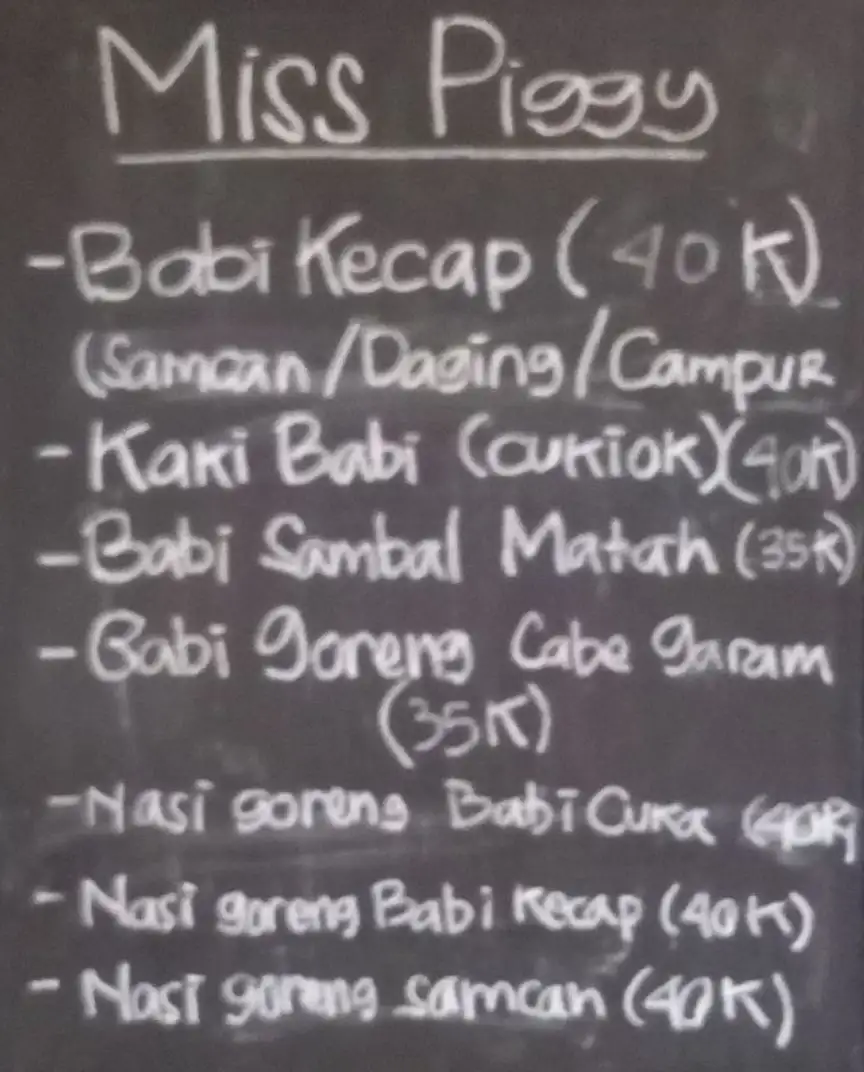 Miss Piggy
- Babi Kecap (40K)
(Samcan/Daging/Campur
- Kaki Babi (cukiok)(40K)
- Babi Sambal Matah (35K)
- Babi goreng Cabe garam
(35K)
- Nasi goreng Babi Cuka (40K)
- Nasi goreng Babi Kecap (40K)
- Nasi goreng samcan (40K)